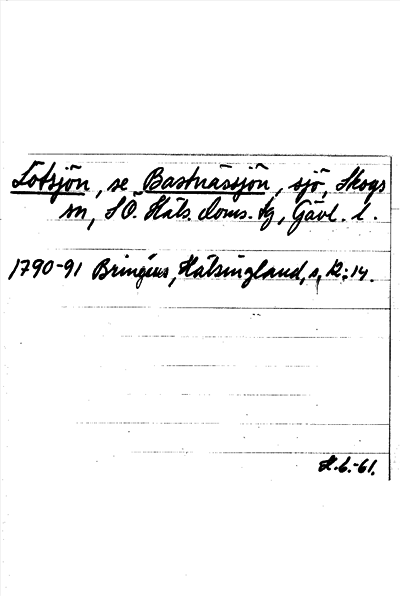 Lötsjön, se Bastnässjön, sjö, Skogs
sn, SÖ. Häls. doms. tg, Gävl. l.
1790-91 Bringéus, Hälsingland, s. 12:14.
H.L.-61.